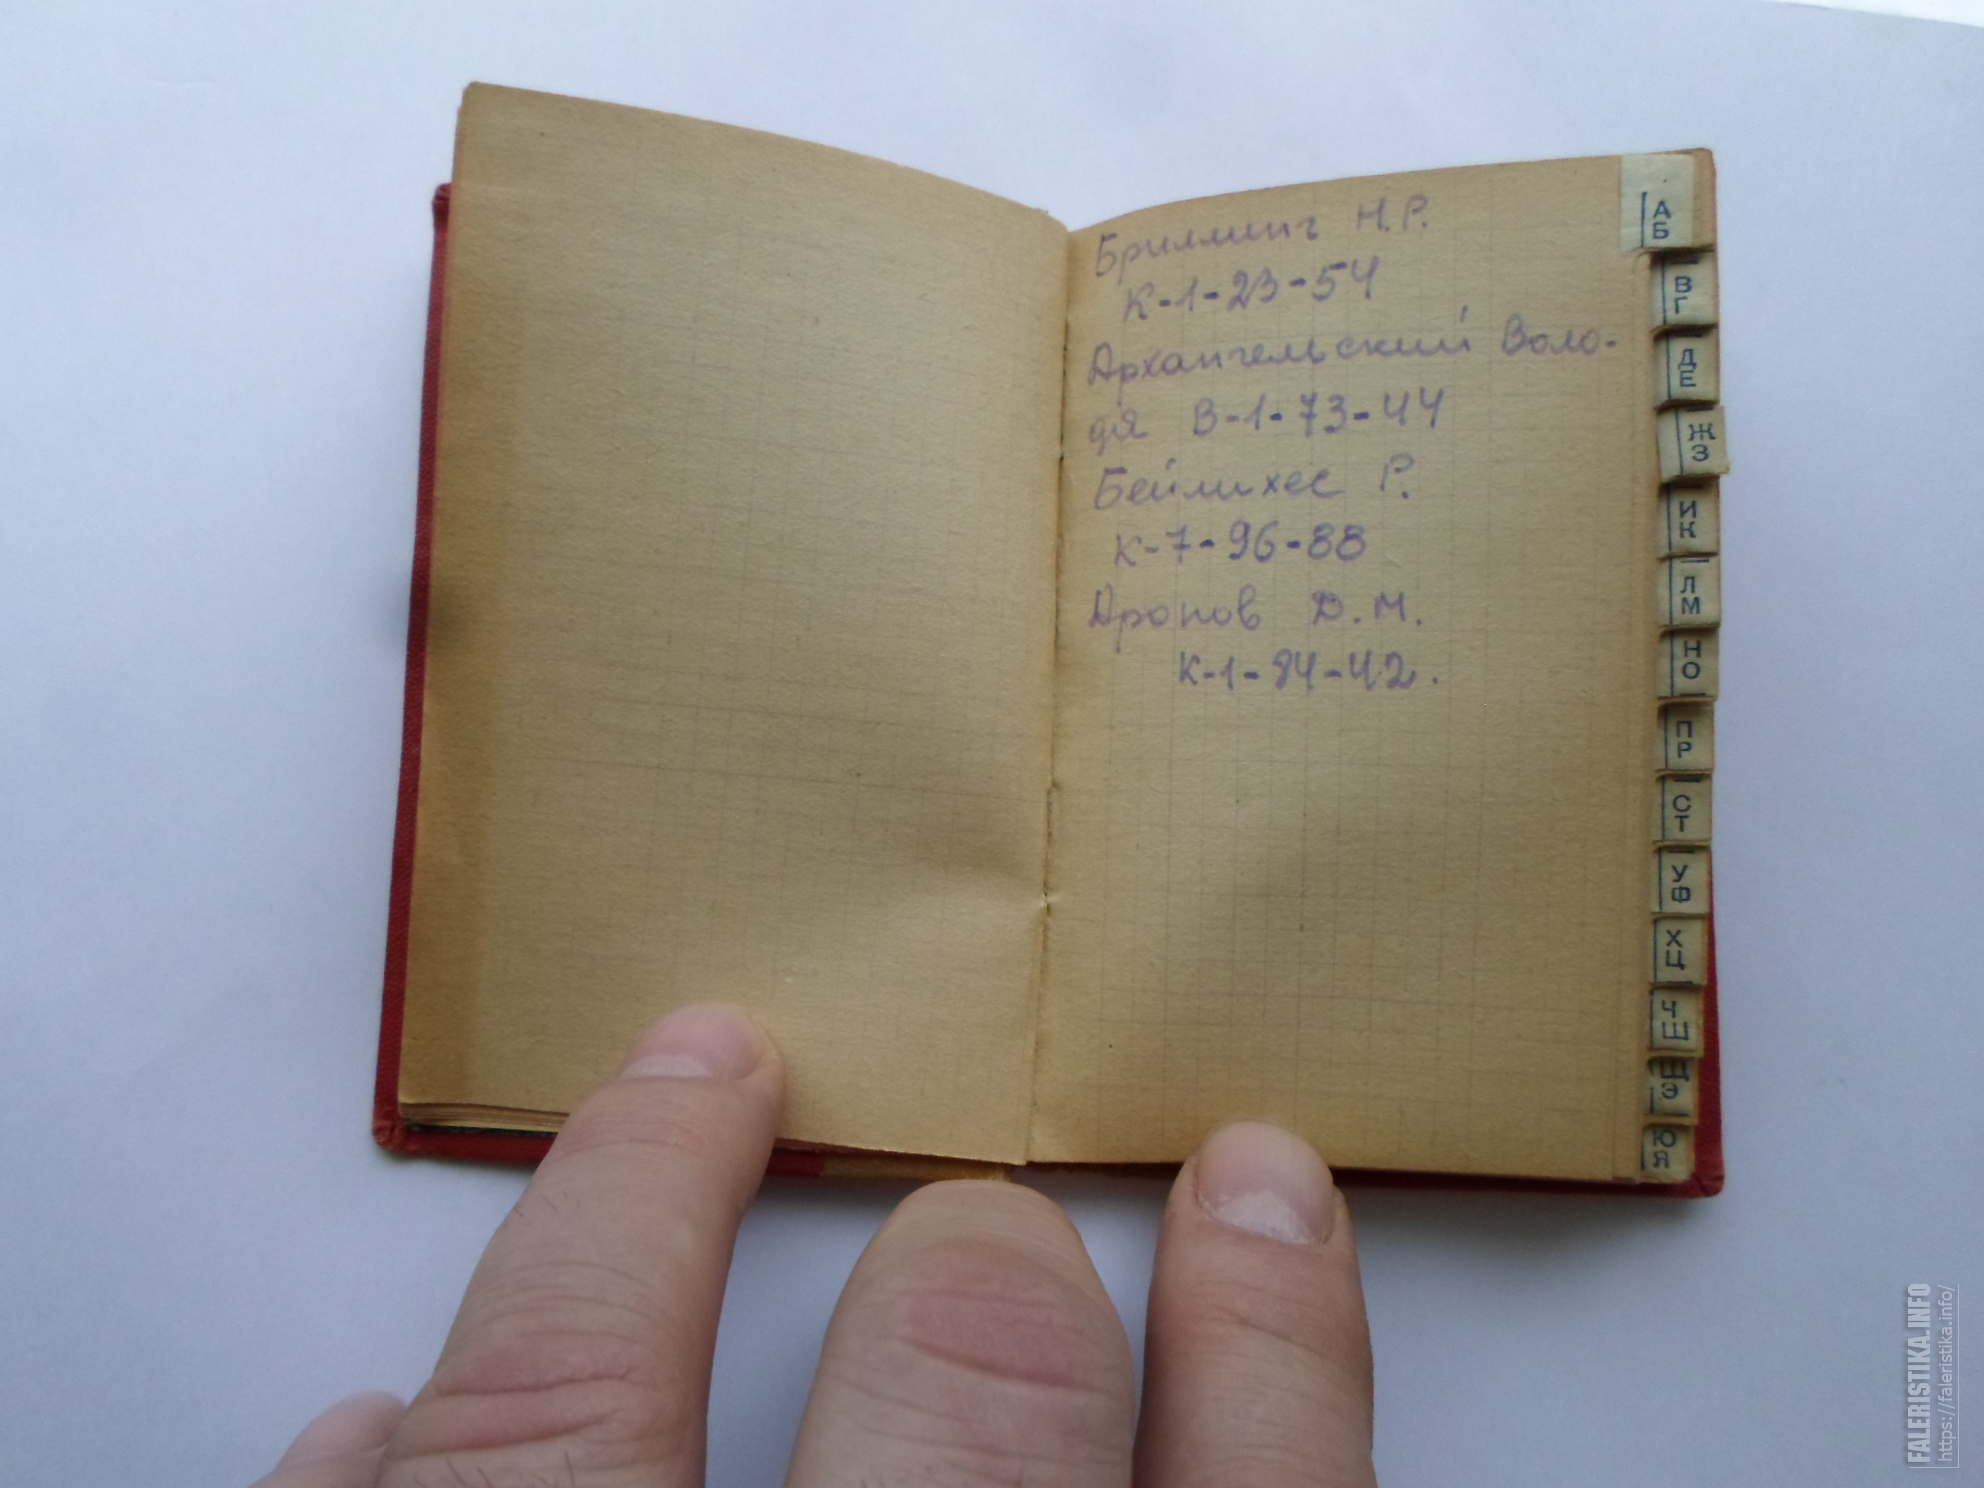 Бриллинг Н.Р.
К-1-23-54
Архангельский Воло-
дя В-1-73-44
Бейлихес Р.
К-7-96-88
Аронов Д.М.
К-1-84-42.
А
Б
В
Г
Д
Е
Ж
З
И
К
Л
М
Н
О
П
Р
С
Т
У
Ф
Х
Ц
Ч
Ш
Щ
Э
Ю
Я
FALERISTIKA.INFO
https://faleristika.info/